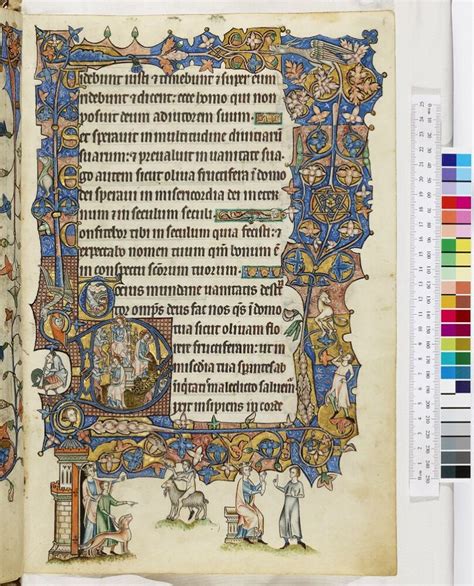 Videbunt iusti et timebunt et super eum
ridebunt et dicent: ecce homo qui non
posuit deum adiutorem suum.
Set sperauit in multitudine diuitiarum
suarum: et preualuit in uanitate sua.
Ego autem sicut oliua fructifera in domo
dei speraui in misericordia dei in eter
num et in seculum seculi.
Confitebor tibi in seculum quia fecisti: et
expectabo nomen tuum qm̄ bonum est
in conspectu scōrum tuorum.
Deus mundane uanitatis
omp̄s deus fac nos q̄s in domo
tua sicut oliuam flo
rere fructiferam: ut in
tua
maledicto
Dixit insipiens in corde